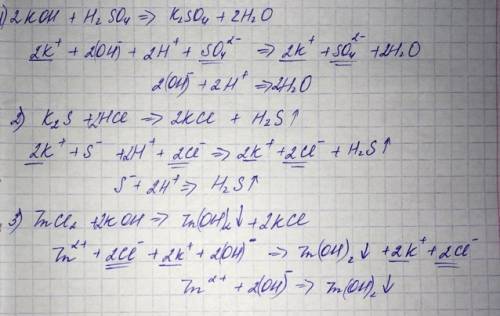 1) 2KOH + H₂SO₄ => K₂SO₄ + 2H₂O
2K⁺ + 2(OH)⁻ + 2H⁺ + SO₄²⁻ => 2K⁺ + SO₄²⁻ + 2H₂O
2(OH)⁻ + 2H⁺ => 2H₂O
2) K₂S + 2HCl => 2KCl + H₂S↑
2K⁺ + S⁻ + 2H⁺ + 2Cl⁻ => 2K⁺ + 2Cl⁻ + H₂S↑
S⁻ + 2H⁺ => H₂S↑
3) ZnCl₂ + 2KOH => Zn(OH)₂↓ + 2KCl
Zn²⁺ + 2Cl⁻ + 2K⁺ + 2(OH)⁻ => Zn(OH)₂↓ + 2K⁺ + 2Cl⁻
Zn²⁺ + 2(OH)⁻ => Zn(OH)₂↓